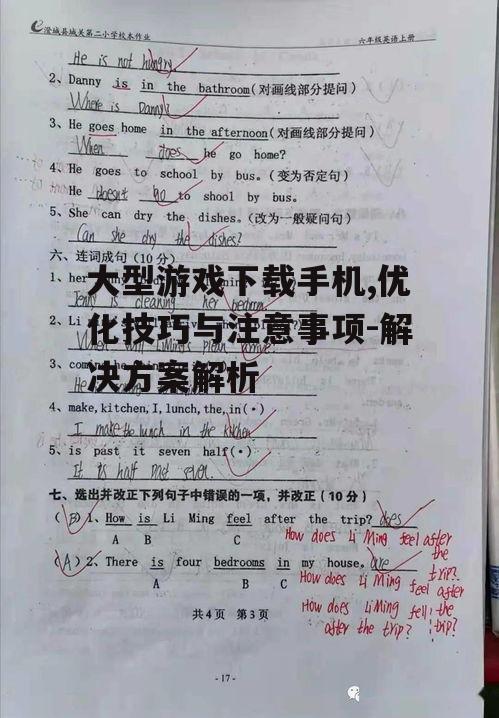 澄城县城关第二小学校本作业 六年级英语上册
He is not hungry
2、Danny is in the bathroom(对画线部分提问)
Where is Danny?
3、He goes home in the afternoon(对画线部分提问)
When does he go home?
4、He goes to school by bus.(变为否定句)
He doesn't go to shool by bus.
5、She can dry the dishes.(改为一般疑问句)
Can she dry the dishes?
六、连词成句(10分)
大型游戏下载手机,优
化技巧与注意事项-解
决方案解析
1、her
Jenny is cleaning her bedroom
2、Li
3、com
He
4、make,kitchen,I,lunch,the,in(•)
I make the lunch in the kitchen
5、is past it seven half(•)
It is half past seven.
七、选出并改正下列句子中错误的一项,并改正(10分)
(B)1、How is Li Ming feel after the trip? does
A B C
How does Li Ming feel after the trip?
(A)2、There is four bedrooms in my house. are
A B C
How does Li Ming feel after the trip?
How does Li Ming fell after the trip?
共4页 第3页
-17-